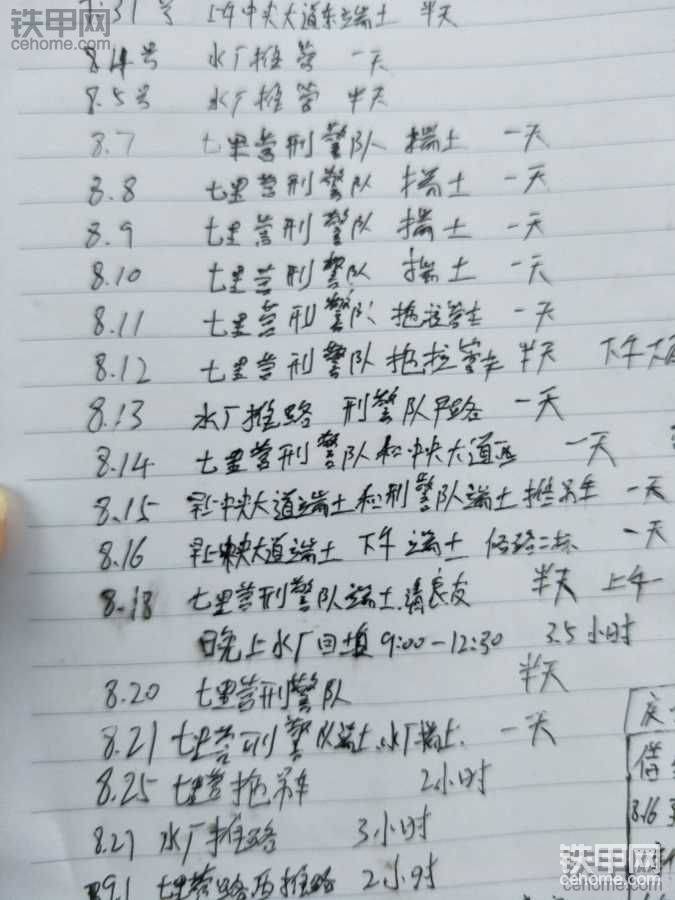 铁甲网
cehome.com
7.31号 上午中央大道东端土 半天
8.4号 水厂推管 一天
8.5号 水厂推管 半天
8.7 七里营刑警队 揣土 一天
8.8 七里营刑警队 揣土 一天
8.9 七里营刑警队 揣土 一天
8.10 七里营刑警队 揣土 一天
8.11 七里营刑警队 拖 一天
8.12 七里营刑警队 拖 半天 下午
8.13 水厂推路 刑警队平路 一天
8.14 七里营刑警队和中央大道 一天
8.15 早上中央大道端土和刑警队端土 推吊车 一天
8.16 早上中央大道端土 下午端土 修路 一天
8.18 七里营刑警队端土 半天 上午
晚上水厂回填 9:00-12:30 3.5小时
8.20 七里营刑警队 半天
8.21 七里营刑警队端土.水厂揣土. 一天
8.25 七里营拖吊车 2小时
借
8.27 水厂推路 3小时
8.16
9.1 七里营路西推路 2小时
铁甲网
cehome.com